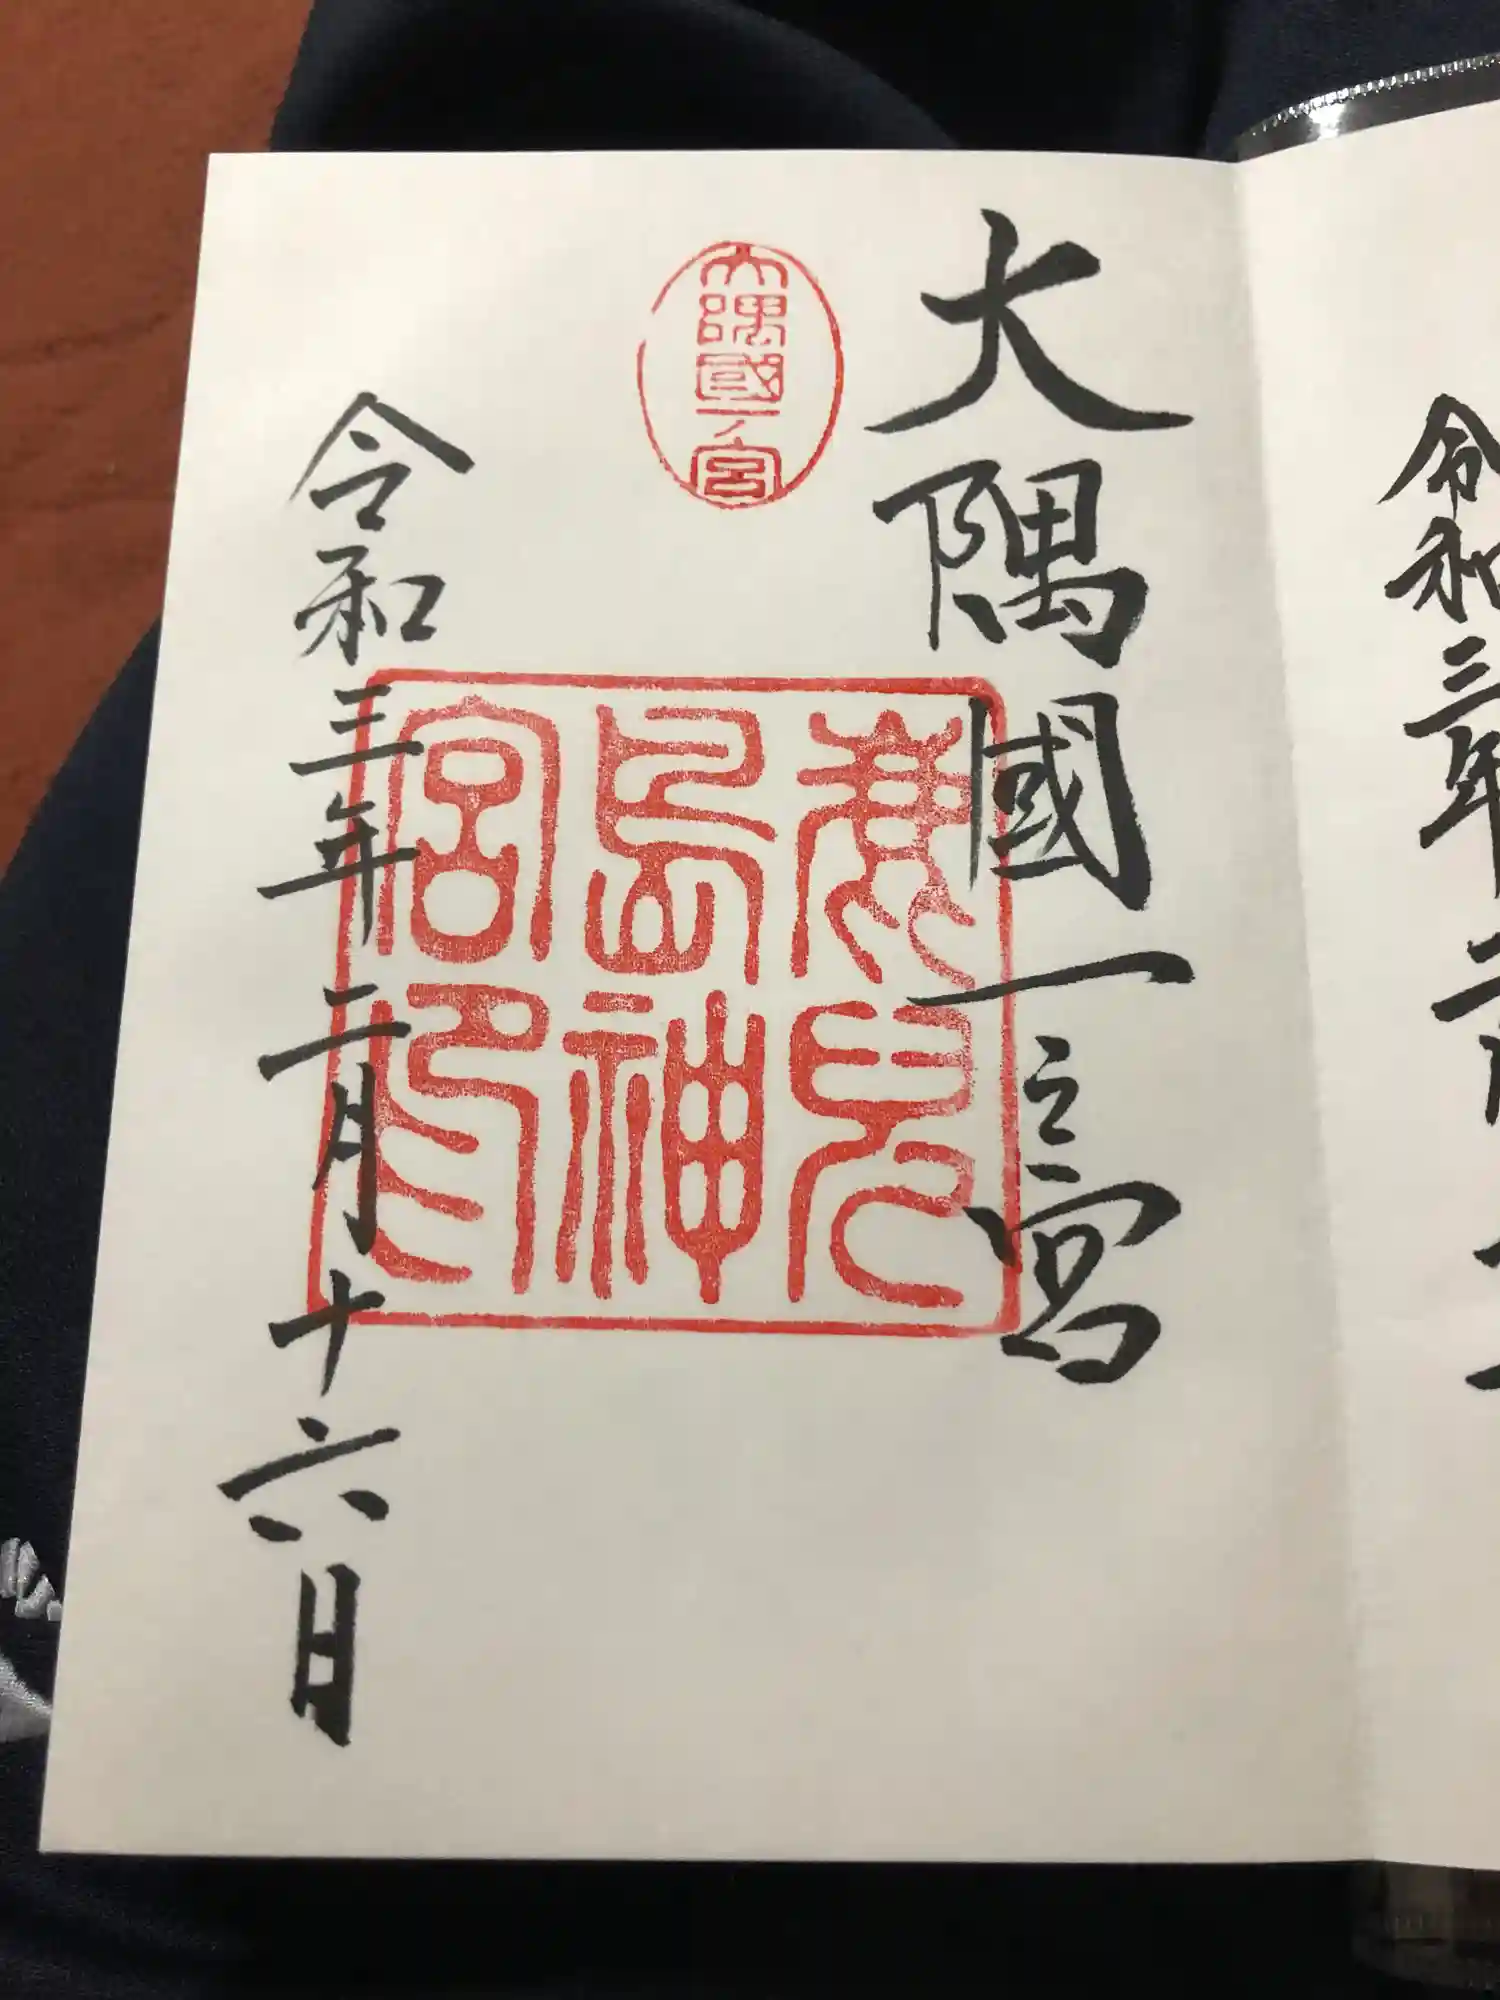 大隅國一之宮
大隅國一ノ宮
鹿兒
島神
宮印
令和三年二月十六日
令和三年二月